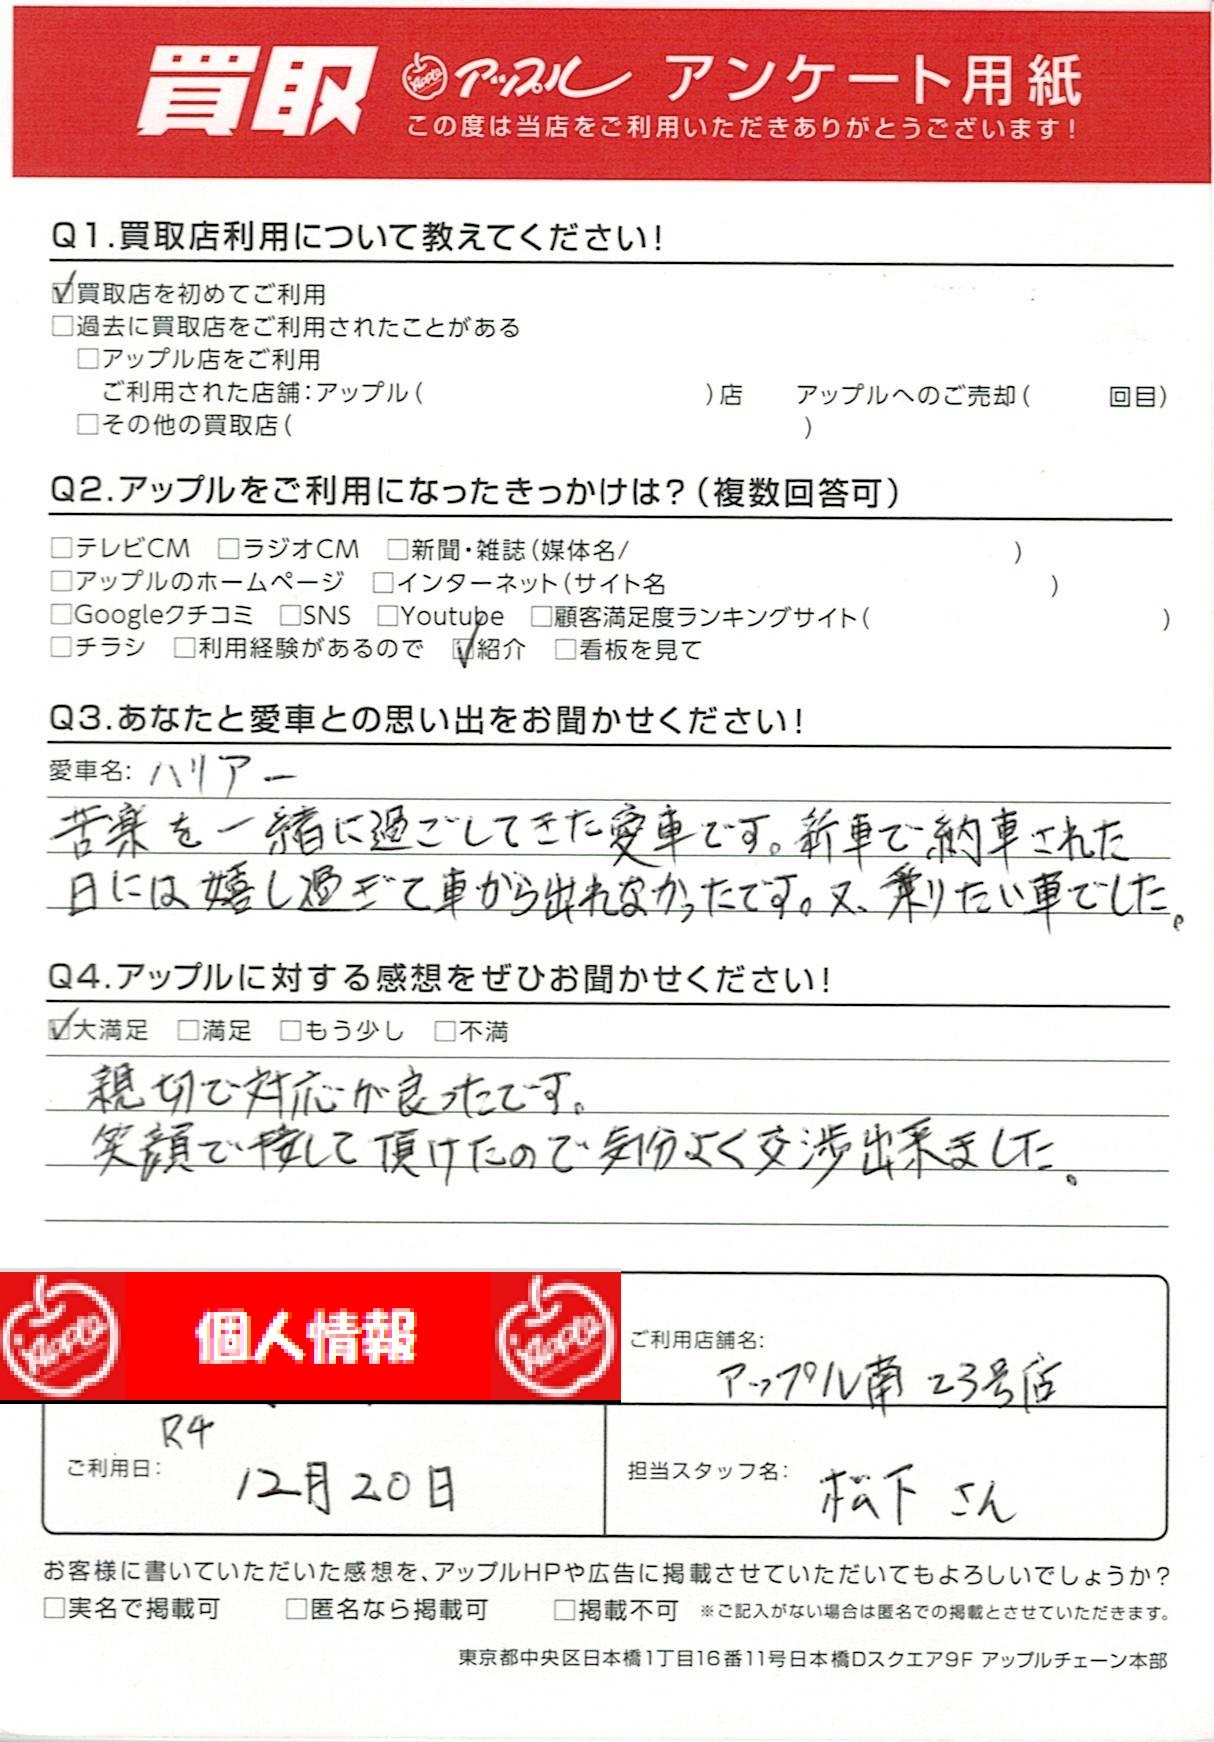 買取 Apple アップル アンケート用紙
この度は当店をご利用いただきありがとうございます!
Q1.買取店利用について教えてください!
☑買取店を初めてご利用
□過去に買取店をご利用されたことがある
□アップル店をご利用
ご利用された店舗:アップル( )店 アップルへのご売却( 回目)
□その他の買取店( )
Q2.アップルをご利用になったきっかけは?(複数回答可)
□テレビCM □ラジオCM □新聞・雑誌(媒体名/ )
□アップルのホームページ □インターネット(サイト名 )
□Googleクチコミ □SNS □Youtube □顧客満足度ランキングサイト( )
□チラシ □利用経験があるので ☑紹介 □看板を見て
Q3.あなたと愛車との思い出をお聞かせください!
愛車名: ハリアー
苦楽を一緒に過ごしてきた愛車です。新車で納車された
日には嬉し過ぎて車から出れなかったです。又、乗りたい車でした。
Q4.アップルに対する感想をぜひお聞かせください!
☑大満足 □満足 □もう少し □不満
親切で対応が良ったです。
笑顔で接して頂けたので気分よく交渉出来ました。
Apple 個人情報 Apple
ご利用店舗名:
アップル南23号店
R4
ご利用日: 12月20日
担当スタッフ名: 松下 さん
お客様に書いていただいた感想を、アップルHPや広告に掲載させていただいてもよろしいでしょうか?
□実名で掲載可 □匿名なら掲載可 □掲載不可 ※ご記入がない場合は匿名での掲載とさせていただきます。
東京都中央区日本橋1丁目16番11号日本橋Dスクエア9F アップルチェーン本部